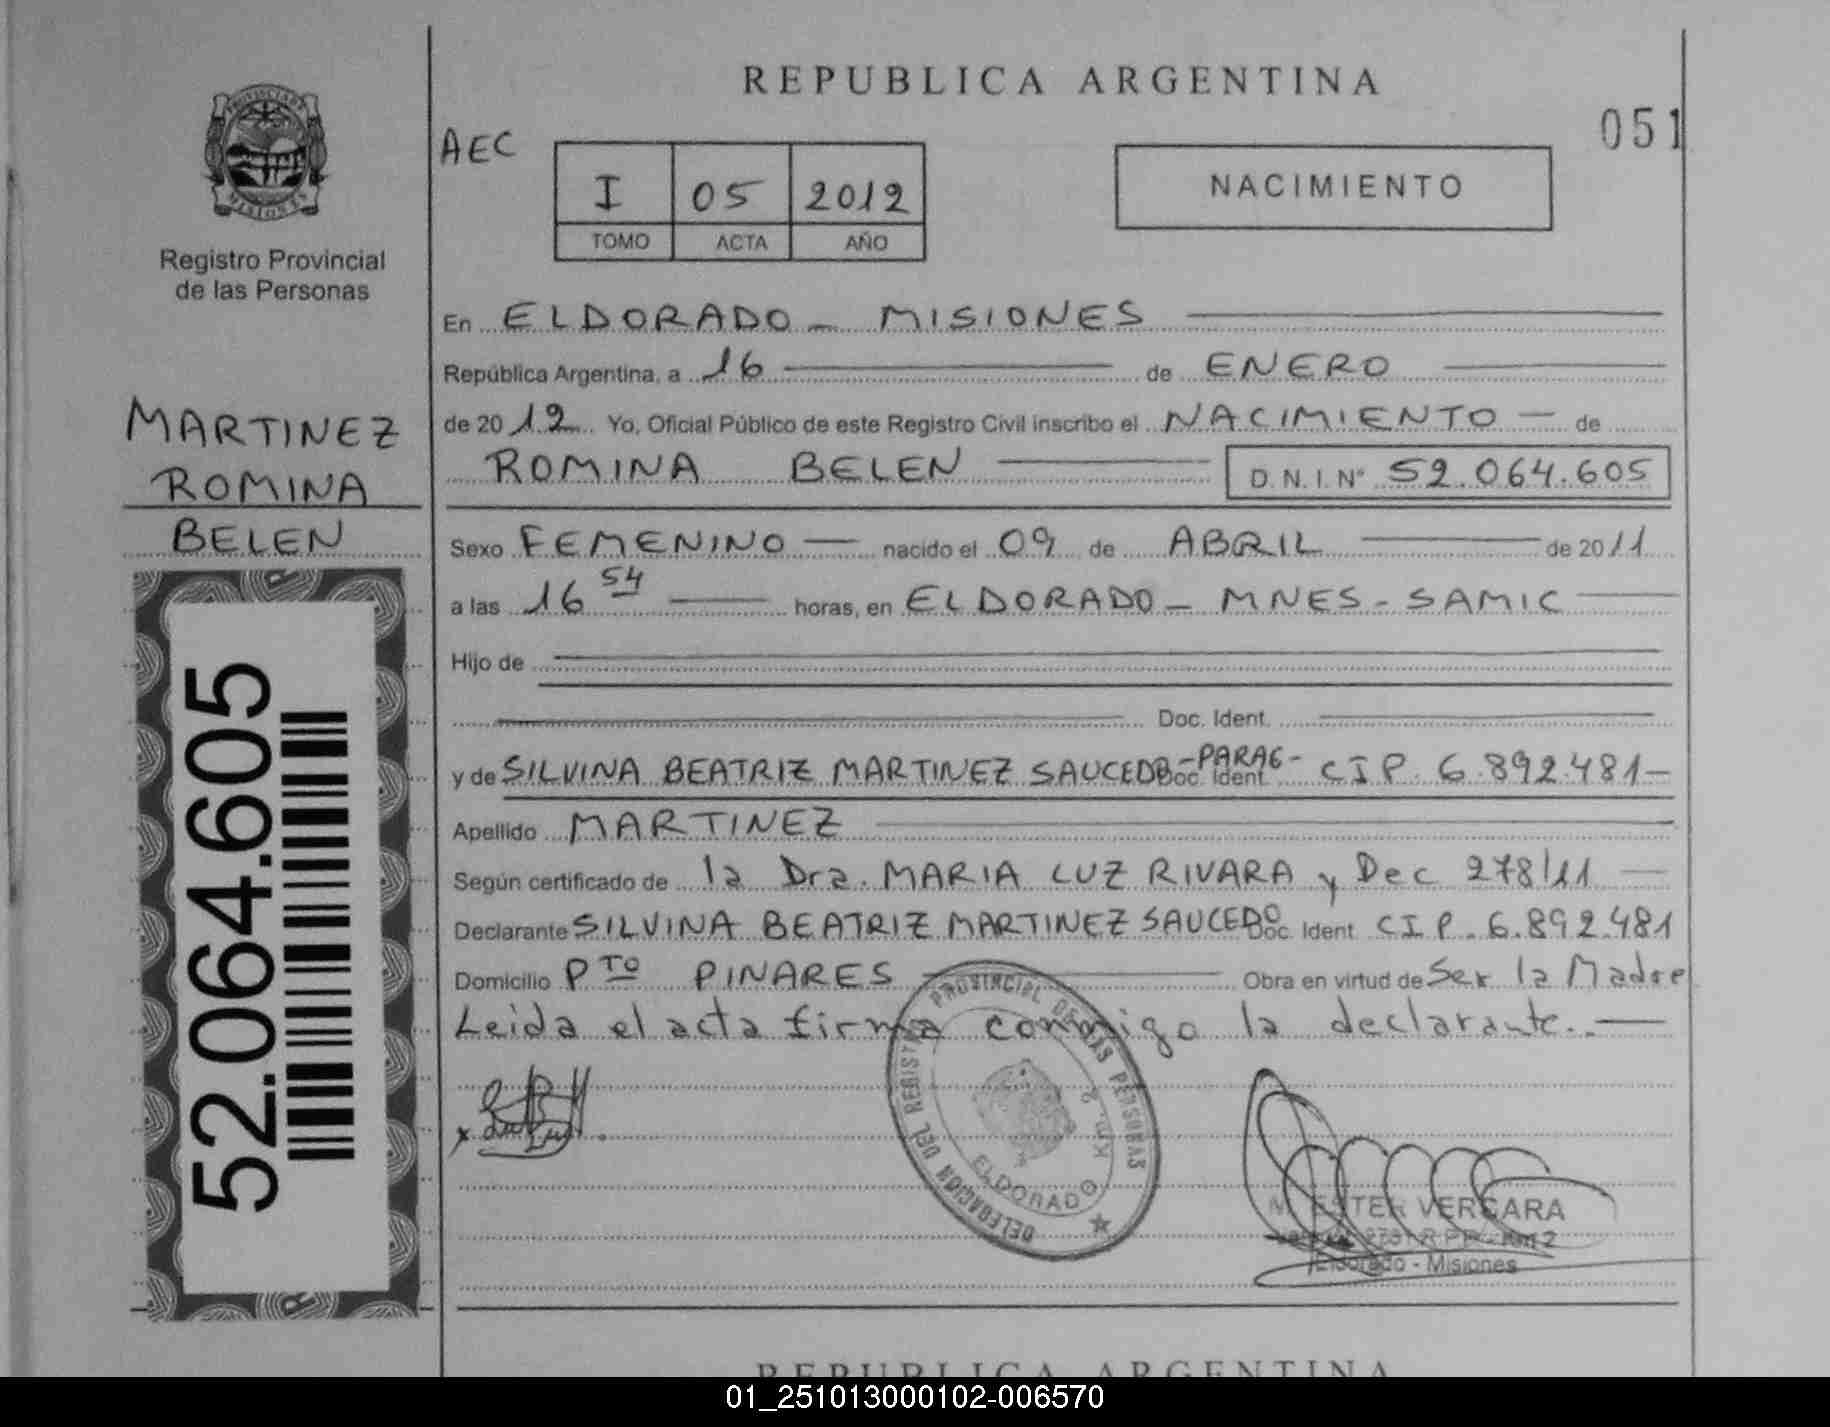 REPUBLICA ARGENTINA
051
PROVINCIA DE MISIONES
Registro Provincial
de las Personas
AEC
I 05 2012
TOMO ACTA AÑO
NACIMIENTO
En ELDORADO - MISIONES
República Argentina, a 16 de ENERO
de 2012 Yo, Oficial Público de este Registro Civil inscribo el NACIMIENTO de
ROMINA BELEN D.N.I.Nº 52.064.605
MARTINEZ
ROMINA
BELEN
Sexo FEMENINO nacido el 09 de ABRIL de 2011
a las 16 54 horas, en ELDORADO - MNES - SAMIC
Hijo de
Doc. Ident.
y de SILVINA BEATRIZ MARTINEZ SAUCEDO Doc. Ident. -PARAG- CIP. 6.892.481-
Apellido MARTINEZ
Según certificado de la Dra. MARIA LUZ RIVARA y Dec 278/11
Declarante SILVINA BEATRIZ MARTINEZ SAUCEDO Doc. Ident CIP. 6.892.481
Domicilio PTO PINARES Obra en virtud de Ser la Madre
Leida el acta firma conmigo la declarante.
52.064.605
DELEGACION DEL REGISTRO PROVINCIAL DE LAS PERSONAS
Km. 2
ELDORADO
ESTER VERGARA
Km 2
Eldorado - Misiones
REPUBLICA ARGENTINA
01_251013000102-006570